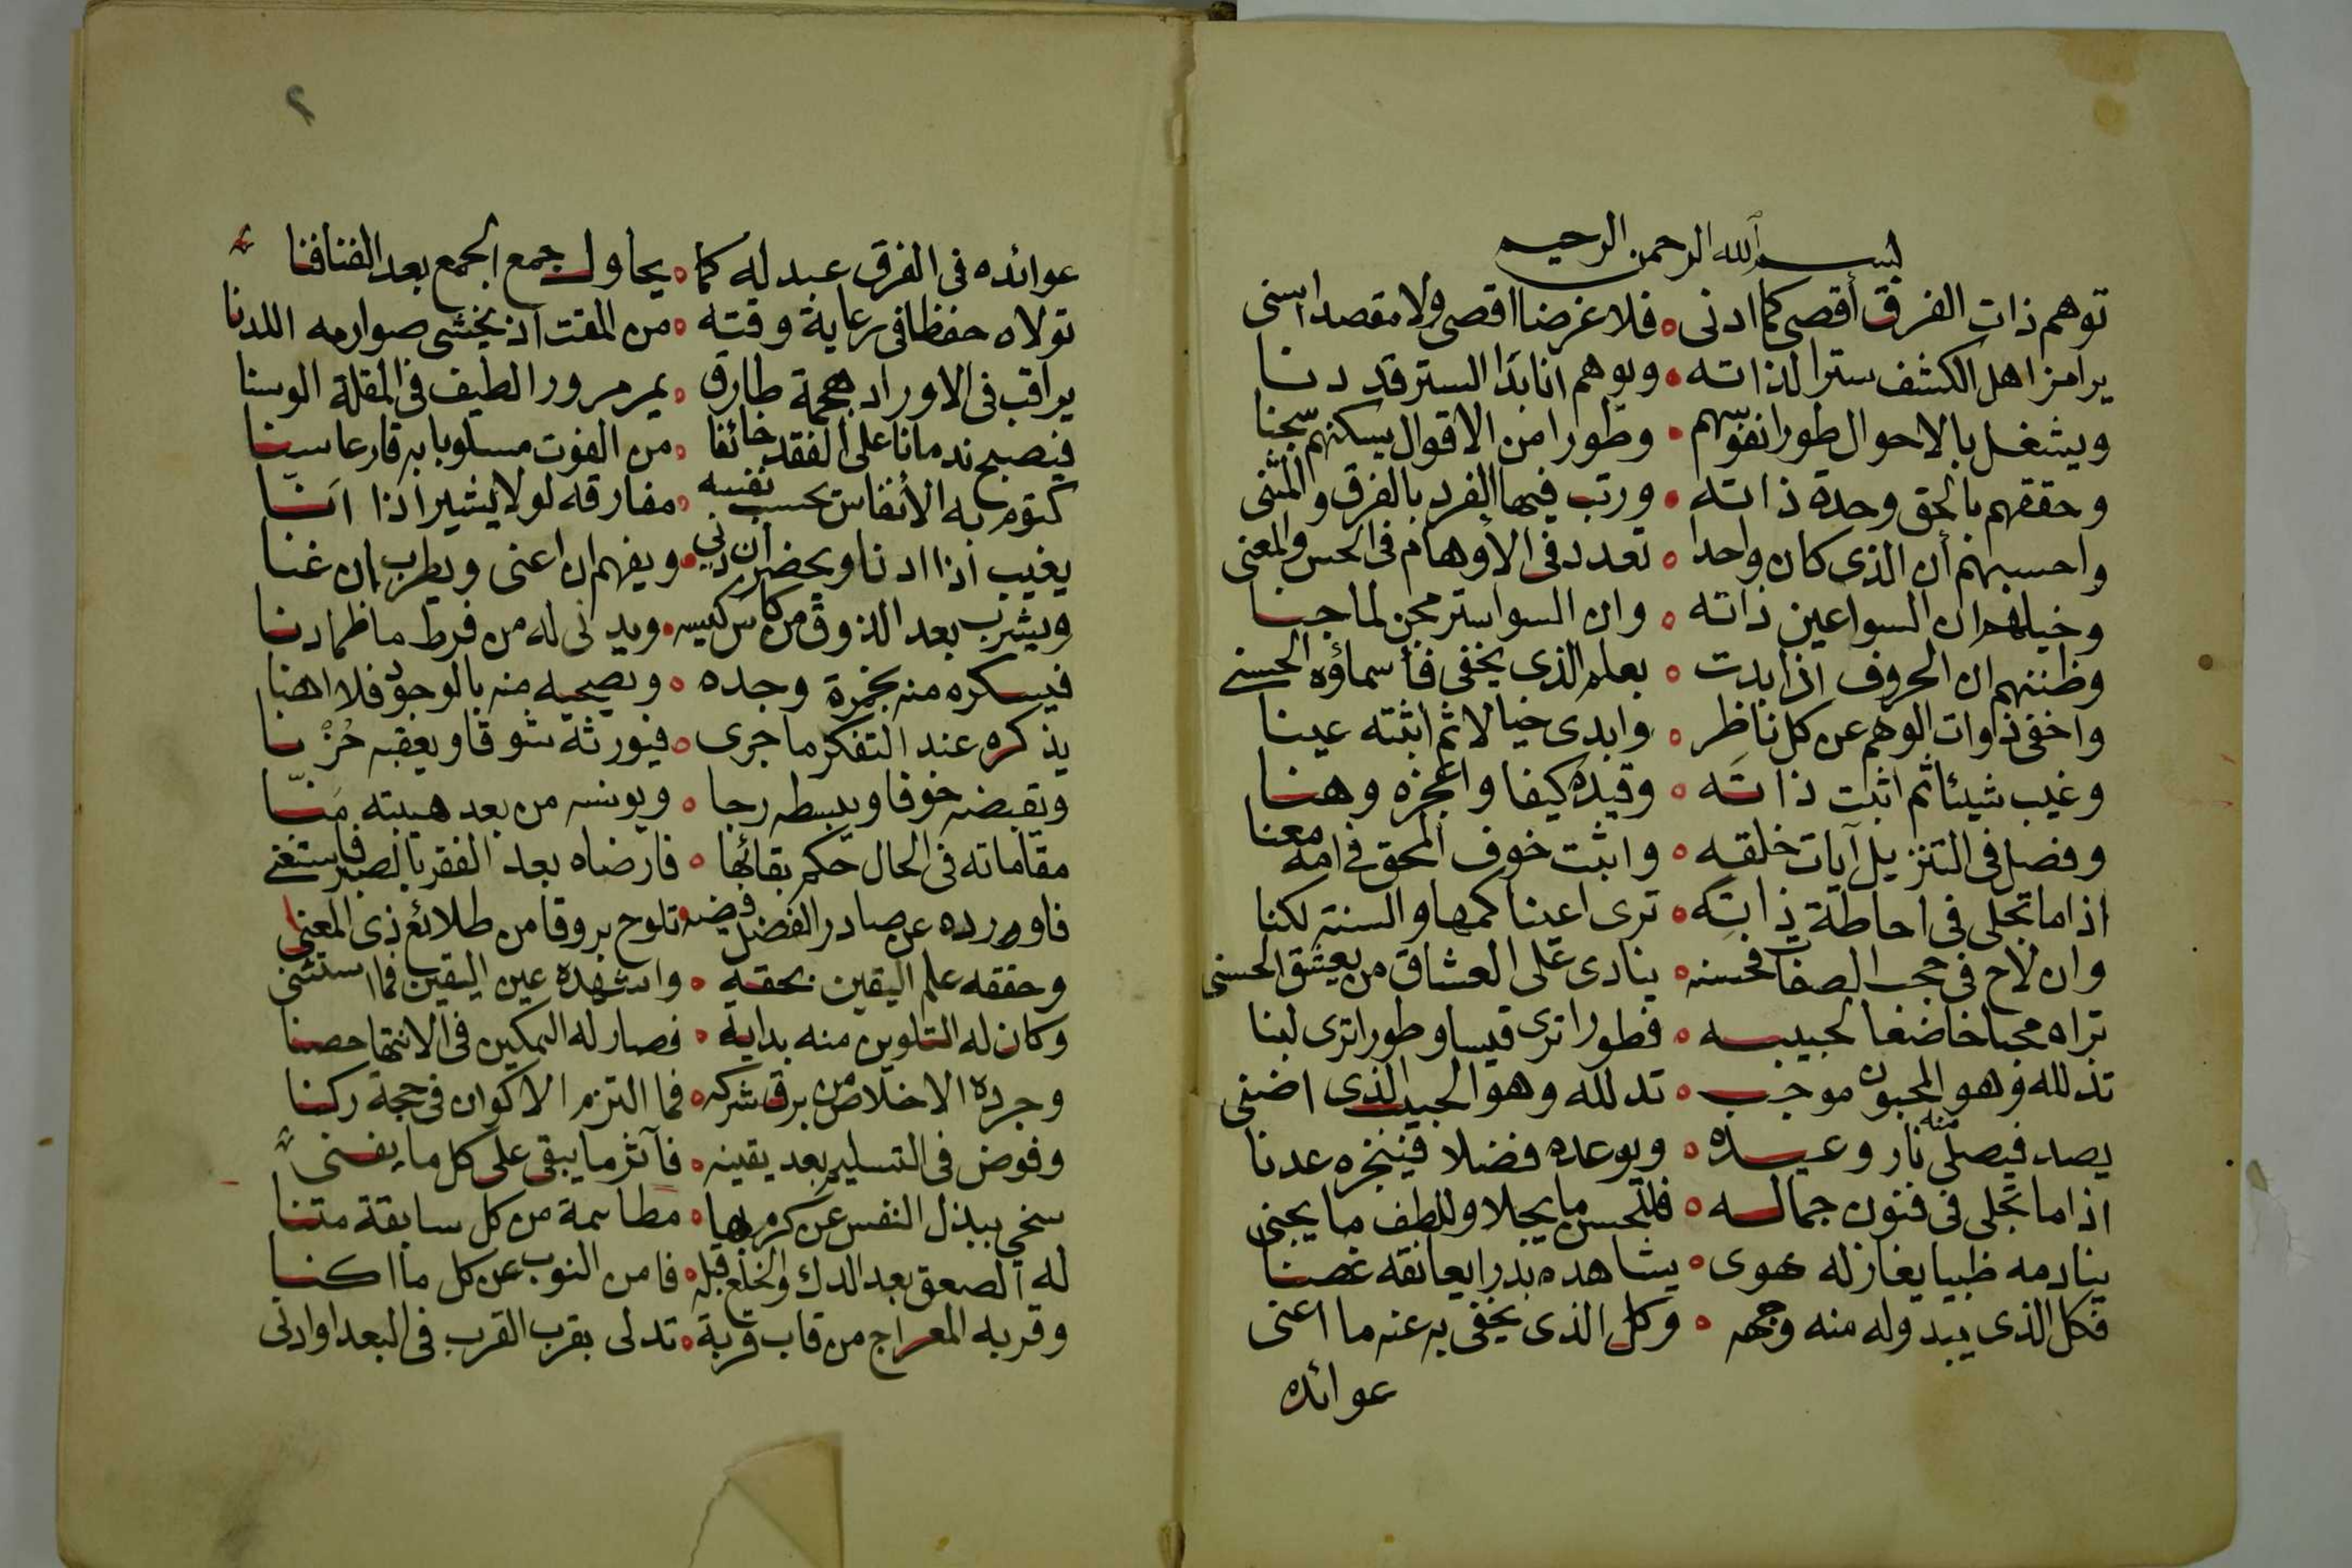 بسم الله الرحمن الرحيم
توهم ذات الفرق أقصى كما ادنى ه فلا غرضا اقصى ولا مقصدا اسنى
يرامز اهل الكشف سترا لذاته ه ويوهم انا بذا الستر قد دنا
ويشغل بالاحوال طورا نفوسهم ه وطورا من الاقوال يسكنهم سجنا
وحققهم بالحق وحدة ذاته ه ورتب فيها الفرد بالفرق والمثنى
واحسبهم أن الذى كان واحدا ه تعدد فى الأوهام فى الحس والمعنى
وخيلهم ان السوا عين ذاته ه وان السوا ستر مجن لما جنا
وظننهم ان الحروف اذا بدت ه بعلم الذى يخفى فأسماؤه الحسنى
واخفى ذاوات الوهم عن كل ناظر ه وابدى خيالا ثم اثبته عينا
وغيب شيئا ثم اثبت ذاته ه وقيده كيفا واعجزه وهنا
وفصل فى التنزيل آيات خلقه ه واثبت خوف المحق فى امه معنا
اذا ما تجلى فى احاطة ذاته ه ترى اعينا كمها والسنة لكنا
وان لاح فى حجب الصفات فحسنه ه ينادى على العشاق من يعشق الحسنى
تراه محبا خاضعا لحبيبه ه فطورا ترى قيسا وطورا ترى لبنا
تذلله وهو المحبون موجب ه تدلله وهو الحبيب الذى اضنى
يصد فيصلى منه نار وعيده ه ويوعده فضلا فينجزه عدنا
اذا ما تجلى فى فنون جماله ه فللحسن ما يجلا وللطف ما يجنى
ينادمه ظبيا يغازله هوى ه يشاهده بدرا يعانقه غصنا
فكل الذى يبدو له منه وجهه ه وكل الذى يخفى به عنه ما اعنى
عوائده
٢
عوائده فى الفرق عبد له كما ه يحاول جمع الجمع بعد الفنا فنا
تولاه حفظا فى رعاية وقته ه من المقت اذ يخشى صوارمه اللدنا
يراقب فى الاوراد هجمة طارق ه يمر مرور الطيف فى المقلة الوسنا
فيصبح ندمانا على الفقد خائفا ه من الفوت مسلوبا به قارعا سنا
كتوم به الأنفاس بحسب نفسه ه مفارقه لولا يشير اذا انا
يغيب اذا ادنا ويحضر ان دنى ه ويفهم ان اعنى ويطرب ان غنا
ويشرب بعد الذوق من كاس كيسه ه ويدنى له من فرط ما ظما دنا
فيسكره منه بخمرة وجده ه ويصحيه منه بالوجود فلا اهنا
يذكره عند التفكر ما جرى ه فيورثه شوقا ويعقبه حُزْنا
ويقبضه خوفا ويبسطه رجا ه ويونسه من بعد هيبته مَنّا
مقاماته فى الحال حكم بقائها ه فارضاه بعد الفقر بالصبر فاستغنى
فاورده عن صادر الفضل فيضه ه تلوح بروقا من طلائع ذى المعنى
وحققه علم اليقين بحقه ه واشهده عين اليقين فما استثنى
وكان له التلوين منه بداية ه فصار له التمكين فى الانتها حصنا
وجرده الاخلاص من برق شركه ه فما التزم الاكوان فى حجة ركنا
وفوض فى التسليم بعد يقينه ه فآثر ما يبقى على كل ما يفنى
سخى ببذل النفس عن كرم بها ه مطاسمة من كل سابقة متنا
له الصعق بعد الدك والخلع قبله ه فامن النوب عن كل ما اكنا
وقربه المعراج من قاب قربة ه تدلى بقرب القرب فى البعد او ادنى